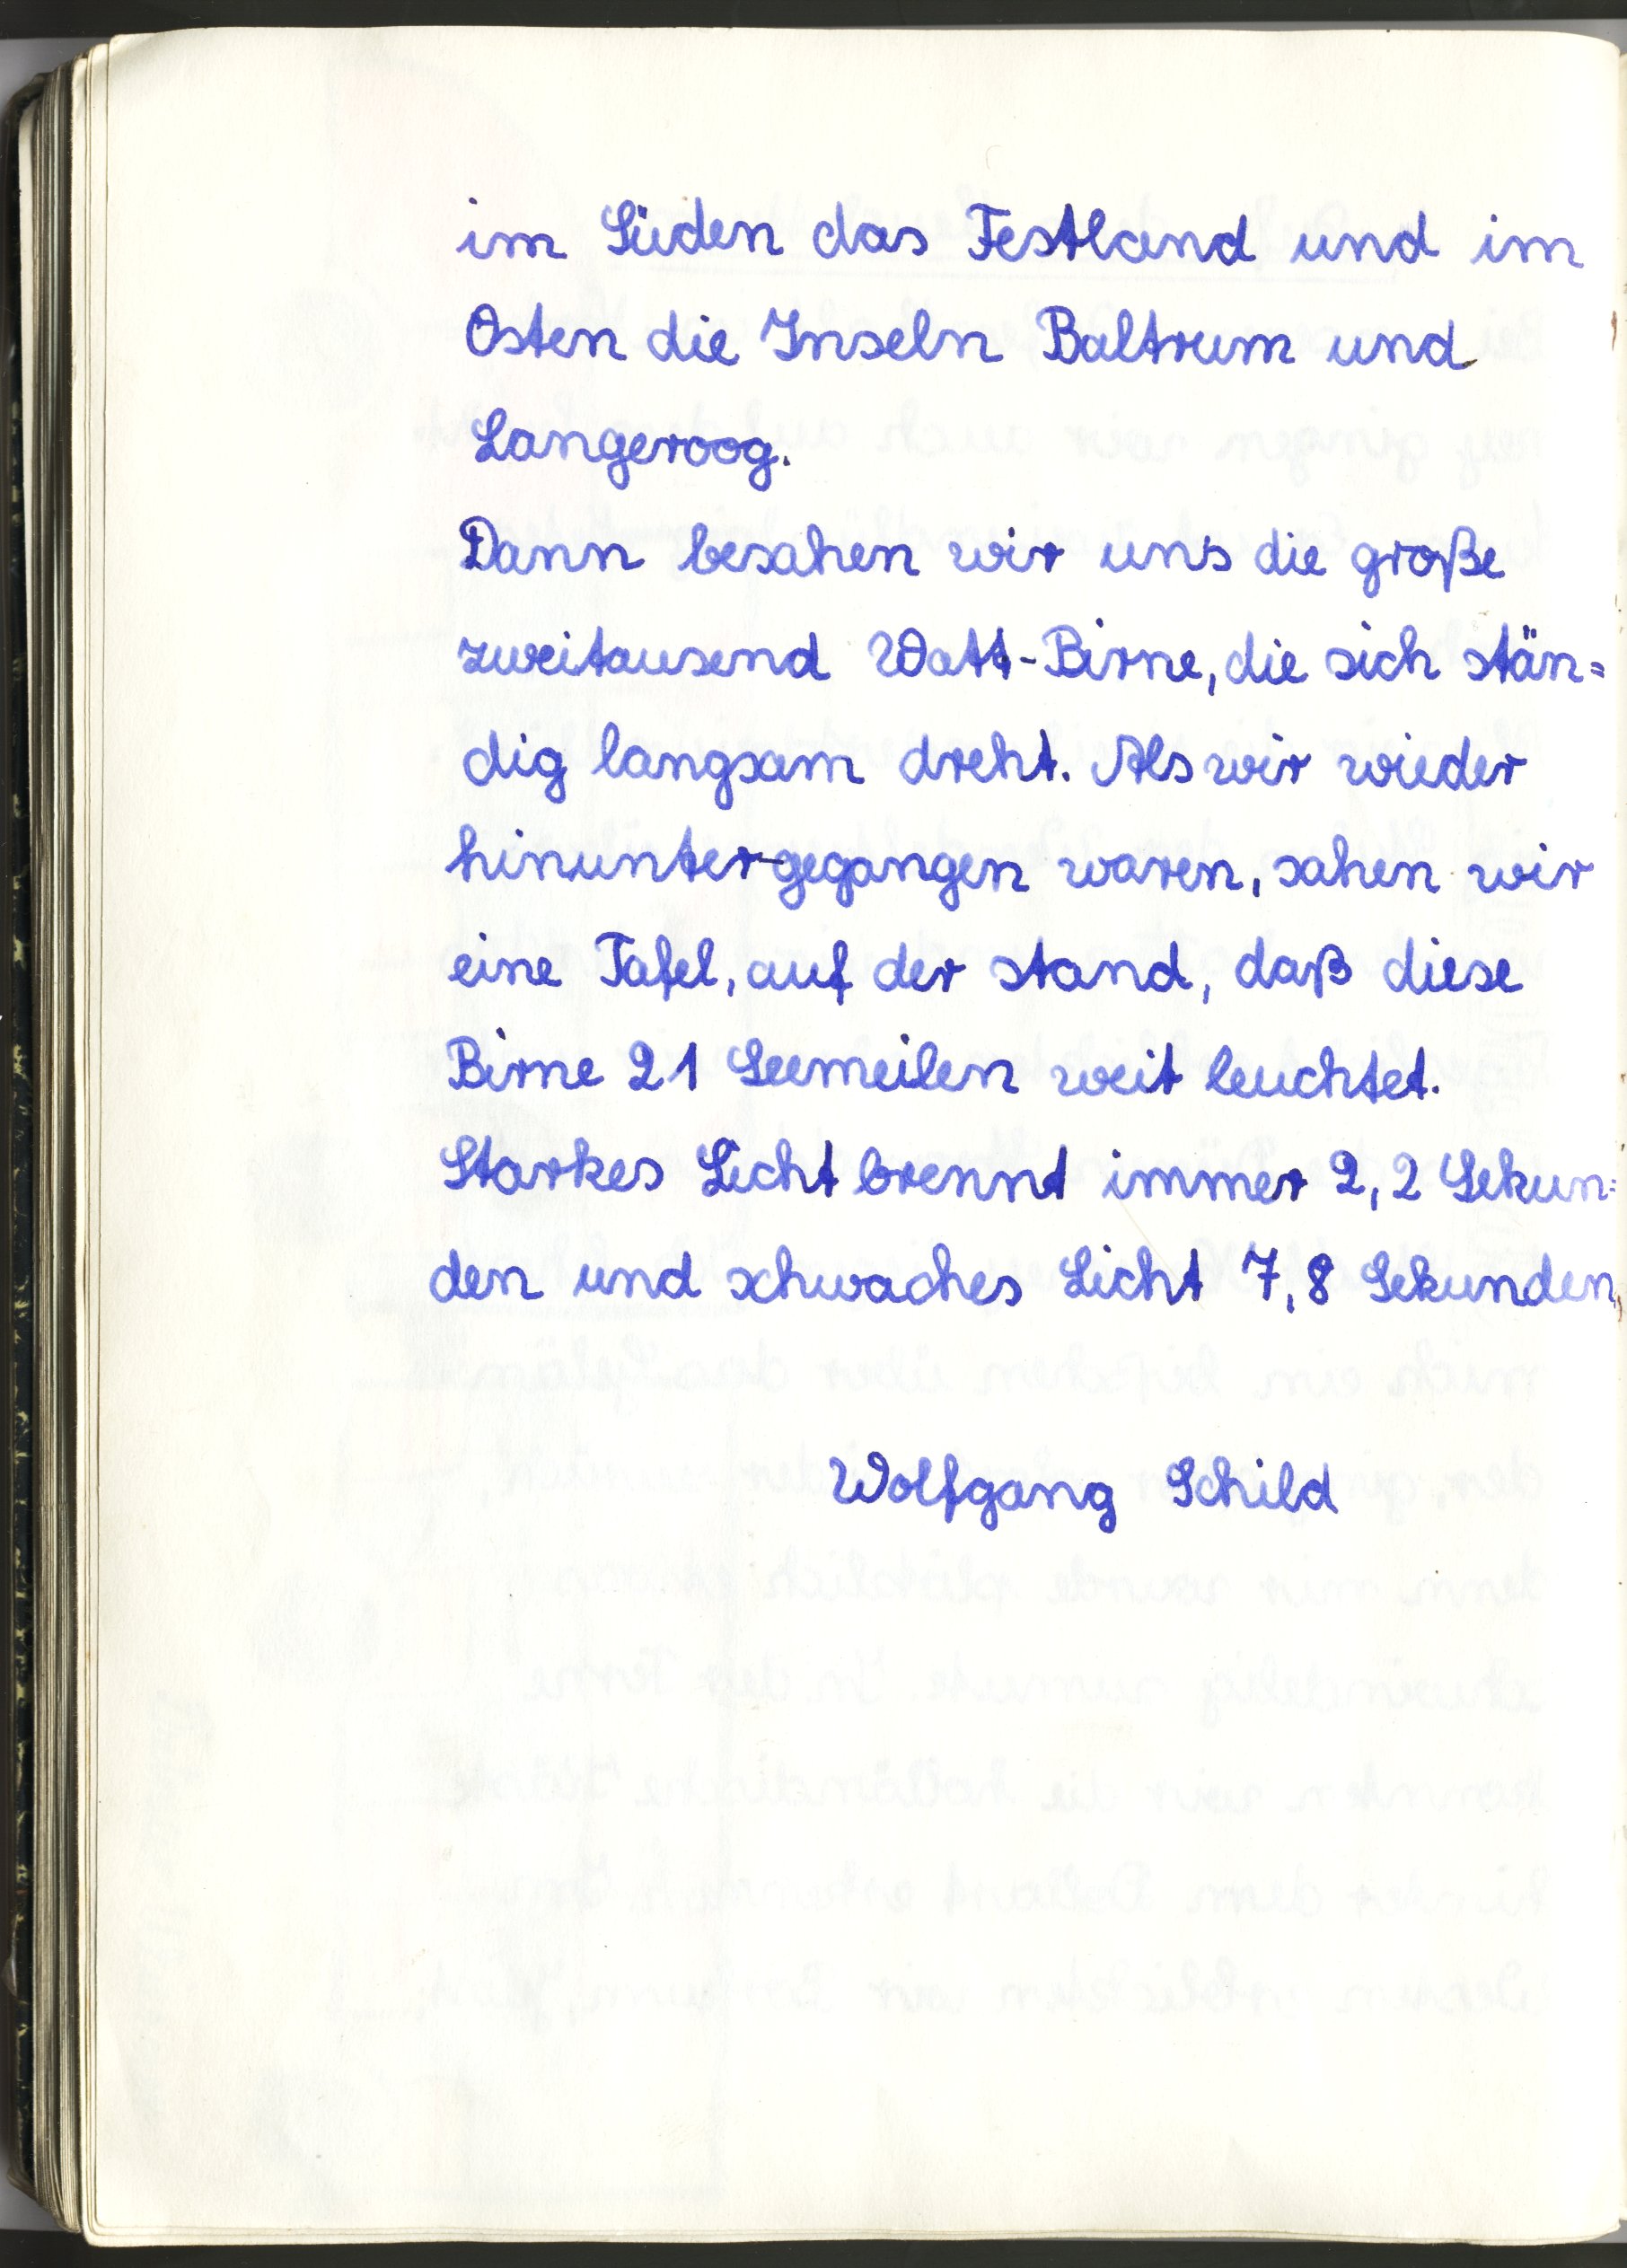 im Süden das Festland und im
Osten die Inseln Baltrum und
Langeroog.
Dann besahen wir uns die große
zweitausend Watt-Birne, die sich stän=
dig langsam dreht. Als wir wieder
hinuntergegangen waren, sahen wir
eine Tafel, auf der stand, daß diese
Birne 21 Seemeilen weit leuchtet.
Starkes Licht brennt immer 2,2 Sekun=
den und schwaches Licht 7,8 Sekunden.
Wolfgang Schild